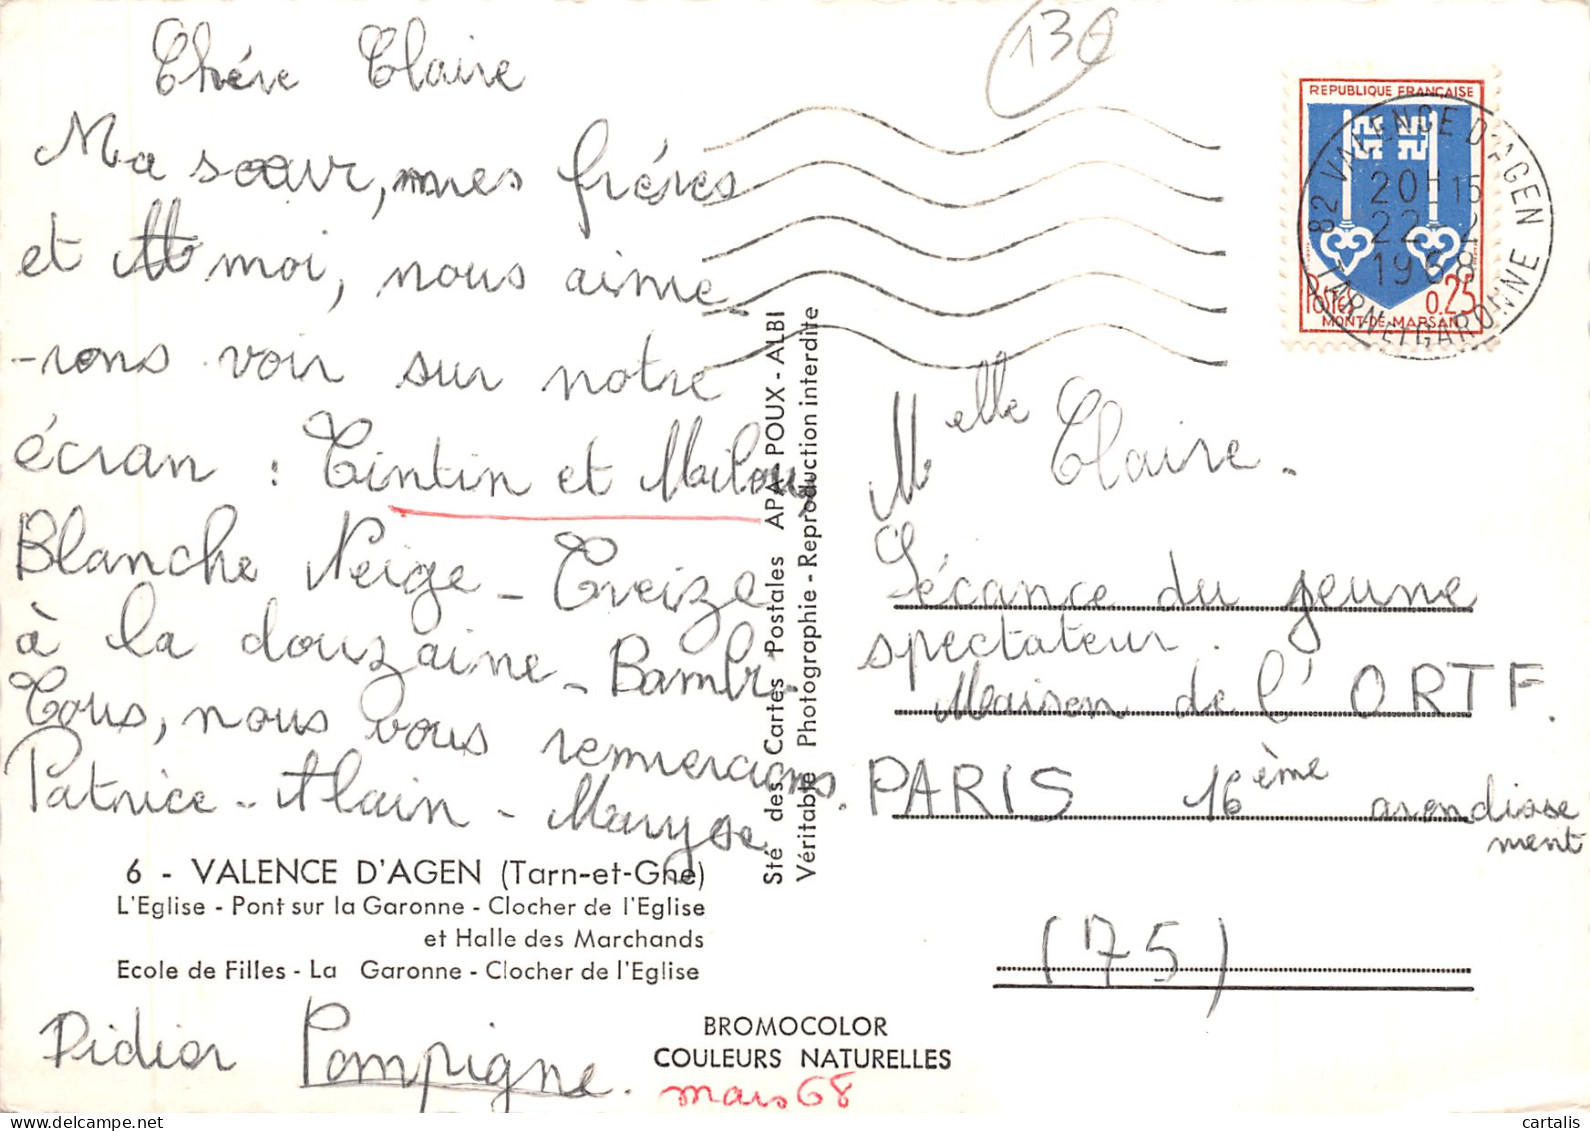 Chére Claire
Ma sœur, mes fréres
et moi, nous aime
-rons voir sur notre
écran : Tintin et Milou
Blanche Neige - Treize
à la douzaine - Bambi -
Tous, nous vous remercions.
Patrice - Alain - Maryse
6 - VALENCE D'AGEN (Tarn-et-Gne)
L'Eglise - Pont sur la Garonne - Clocher de l'Eglise
et Halle des Marchands
Ecole de Filles - La Garonne - Clocher de l'Eglise
Didier Pompigne.
BROMOCOLOR
COULEURS NATURELLES
mars 68
Sté des Cartes Postales APA-POUX - ALBI
Véritable Photographie - Reproduction interdite
13
REPUBLIQUE FRANÇAISE
POSTES 0,25
MONT-DE-MARSAN
82 VALENCE D'AGEN
20H15
22-2
1968
TARN ET GARONNE
Melle Claire -
Sécance du jeune
spectateur.
Maison de l'ORTF.
PARIS 16ème arrondisse
ment
(75)
cartalis